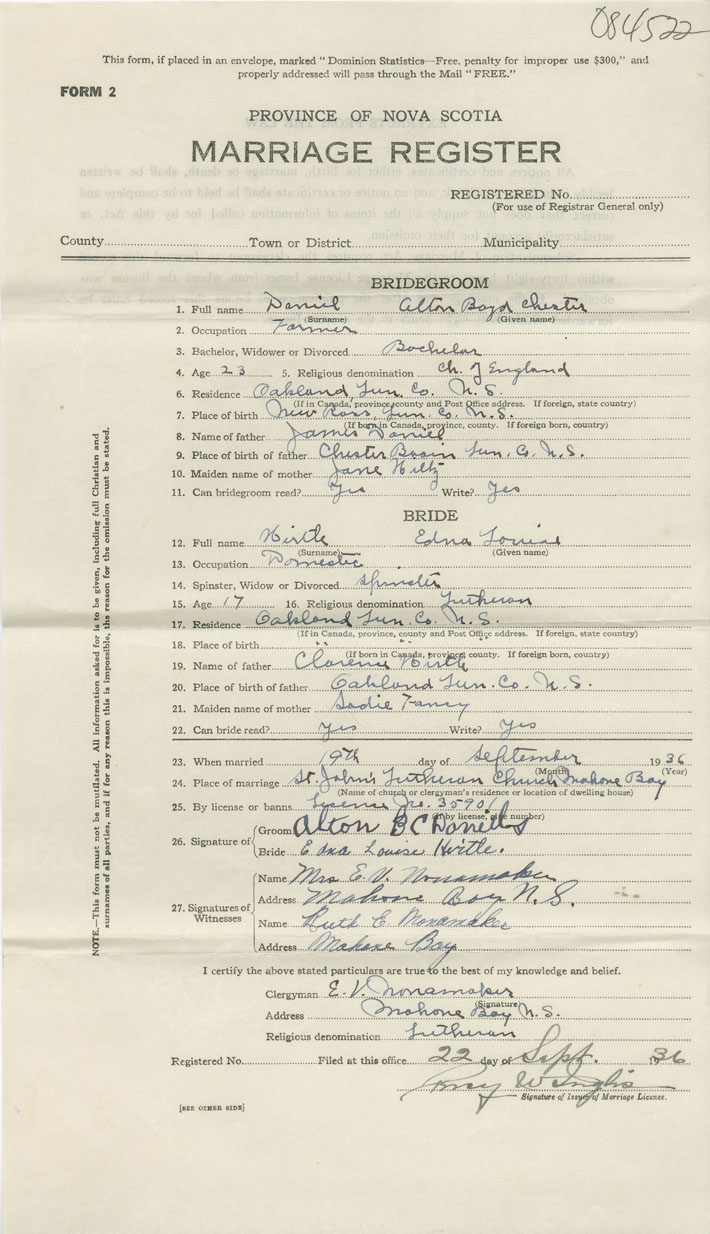 084522
This form, if placed in an envelope, marked "Dominion Statistics—Free, penalty for improper use $300," and
properly addressed will pass through the Mail "FREE."
FORM 2
PROVINCE OF NOVA SCOTIA
MARRIAGE REGISTER
REGISTERED No.
(For use of Registrar General only)
County Town or District Municipality
BRIDEGROOM
1. Full name Daniel Alton Boyd Chester
(Surname) (Given name)
2. Occupation Farmer
3. Bachelor, Widower or Divorced Bachelor
4. Age 23 5. Religious denomination Ch. of England
6. Residence Oakland Lun. Co. N. S.
(If in Canada, province, county and Post Office address. If foreign, state country)
7. Place of birth New Ross, Lun. Co. N. S.
(If born in Canada, province, county. If foreign born, country)
8. Name of father James Daniel
9. Place of birth of father Chester Basin Lun. Co. N. S.
10. Maiden name of mother Jane Hiltz
11. Can bridegroom read? Yes Write? Yes
BRIDE
12. Full name Hirtle Edna Louise
(Surname) (Given name)
13. Occupation Domestic
14. Spinster, Widow or Divorced Spinster
15. Age 17 16. Religious denomination Lutheran
17. Residence Oakland Lun. Co. N. S.
(If in Canada, province, county and Post Office address. If foreign, state country)
18. Place of birth " " " "
(If born in Canada, province, county. If foreign born, country)
19. Name of father Clarence Hirtle
20. Place of birth of father Oakland Lun. Co. N. S.
21. Maiden name of mother Sadie Fancy
22. Can bride read? yes Write? Yes
23. When married 19th day of September 1936
(Month) (Year)
24. Place of marriage St. John's Lutheran Church Mahone Bay
(Name of church or clergyman's residence or location of dwelling house)
25. By license or banns License No. 35901
(If by license, give number)
26. Signature of Groom Alton B C Daniells
Bride Edna Louise Hirtle.
27. Signatures of Witnesses
Name Mrs E. V. Nonamaker
Address Mahone Bay N. S.
Name Ruth E. Nonamaker
Address Mahone Bay
I certify the above stated particulars are true to the best of my knowledge and belief.
Clergyman E. V. Nonamaker
(Signature)
Address Mahone Bay N. S.
Religious denomination Lutheran
Registered No. Filed at this office 22 day of Sept. 1936
W Inglis
Signature of Issuer of Marriage License.
[SEE OTHER SIDE]
NOTE.—This form must not be mutilated. All information asked for is to be given, including full Christian and
surnames of all parties, and if for any reason this is impossible, the reason for the omission must be stated.